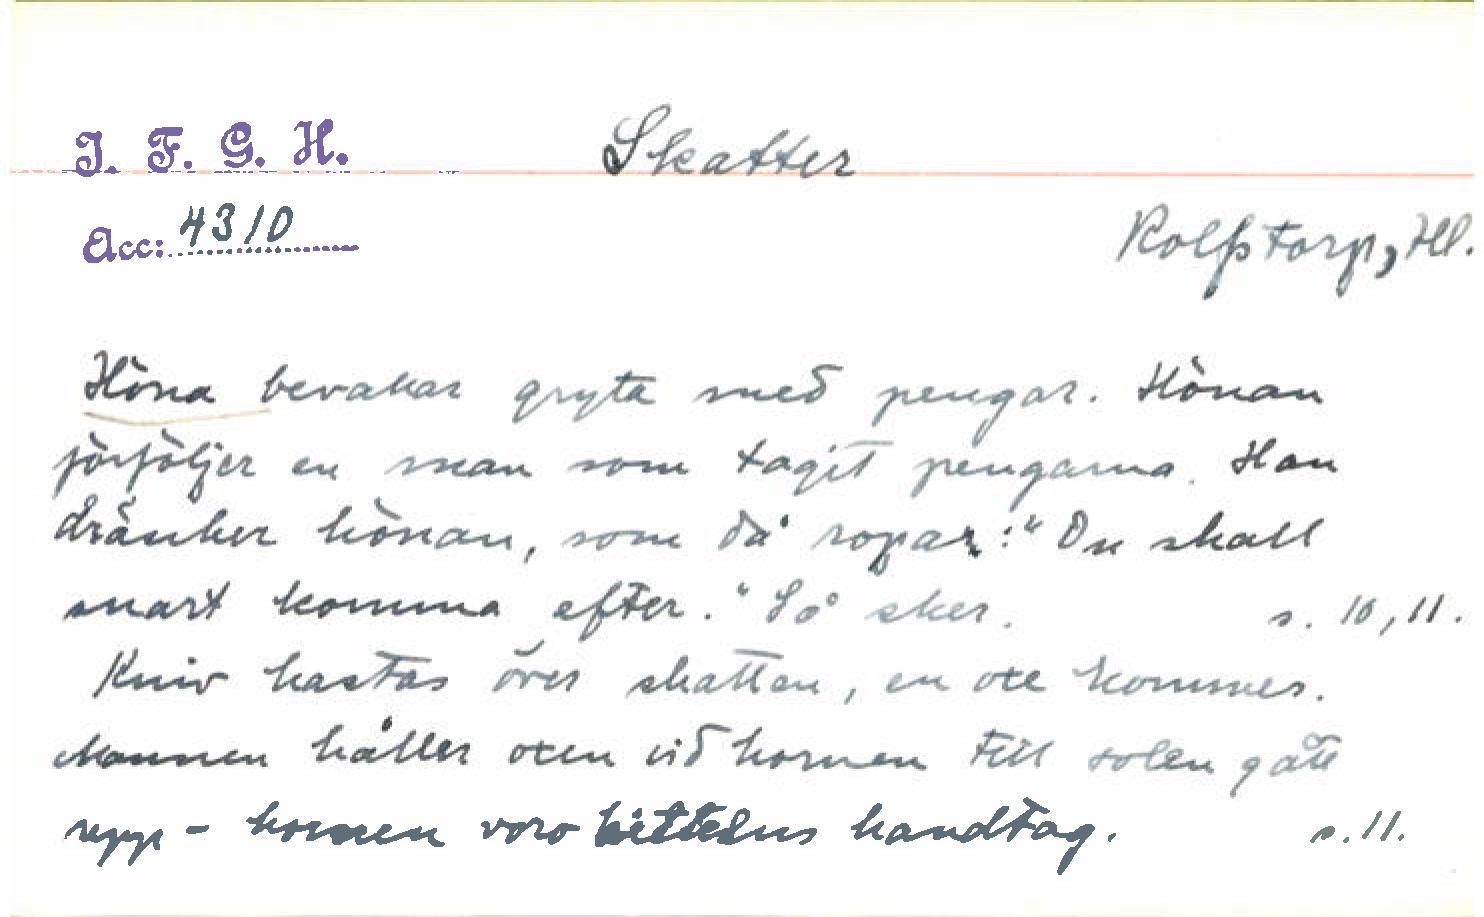 I. F. G. H.
Skatter
Acc: 4310
Rolfstorp, Hl.
Höna bevakar gryta med pengar. Hönan
förföljer en man som tagit pengarna. Han
dränker hönan, som då ropar: "Du skall
snart komma efter." Så sker. s. 10, 11.
Kniv kastas över skatten, en oxe kommer.
Mannen håller oxen vid hornen till solen gått
upp - hornen voro kittelns handtag. s. 11.